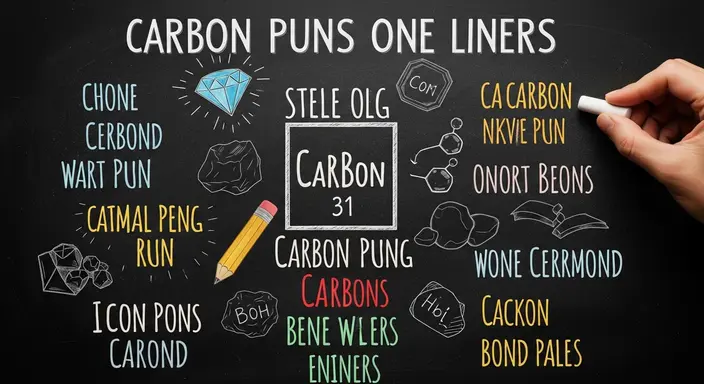 CARBON PUNS ONE LINERS
CHONE
CERBOND
WART PUN
STELE OLG
COM
CA CARBON
NKVIE PUN
CARBON
31
ONORT BEONS
CATMAL PENG
RUN
CARBON PUNG
CARBONS
BENE WLERS
ENINERS
WONE CERRMOND
ICON PONS
CAROND
BOH
Hbi,
CACKON
BOND PALES